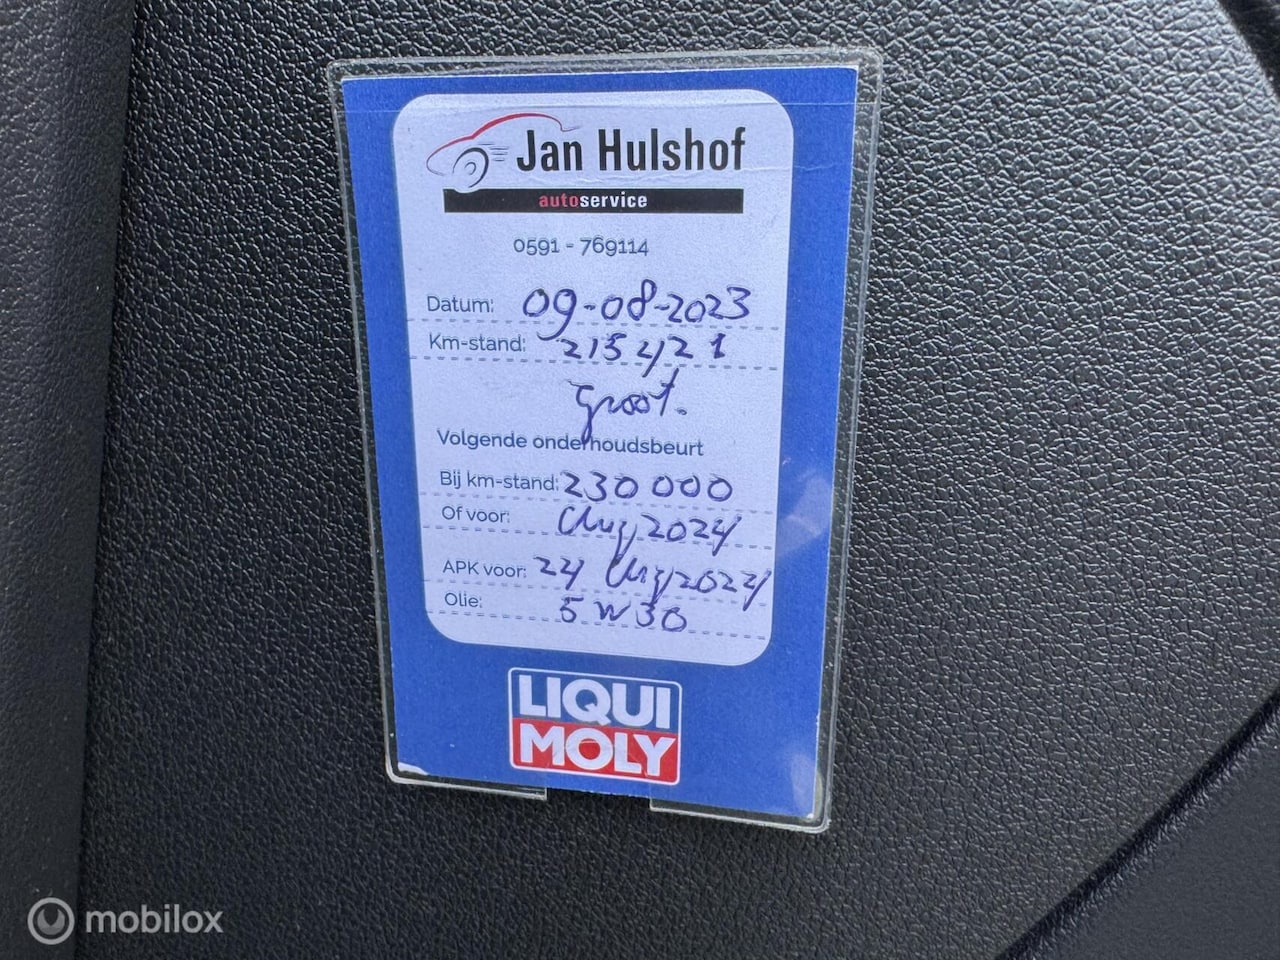 Jan Hulshof
autoservice
0591 - 769114
Datum: 09-08-2023
Km-stand: 215421
Groot.
Volgende onderhoudsbeurt
Bij km-stand: 230000
Of voor: Aug 2024
APK voor: 24 Aug 2024
Olie: 5W30
LIQUI
MOLY
mobilox